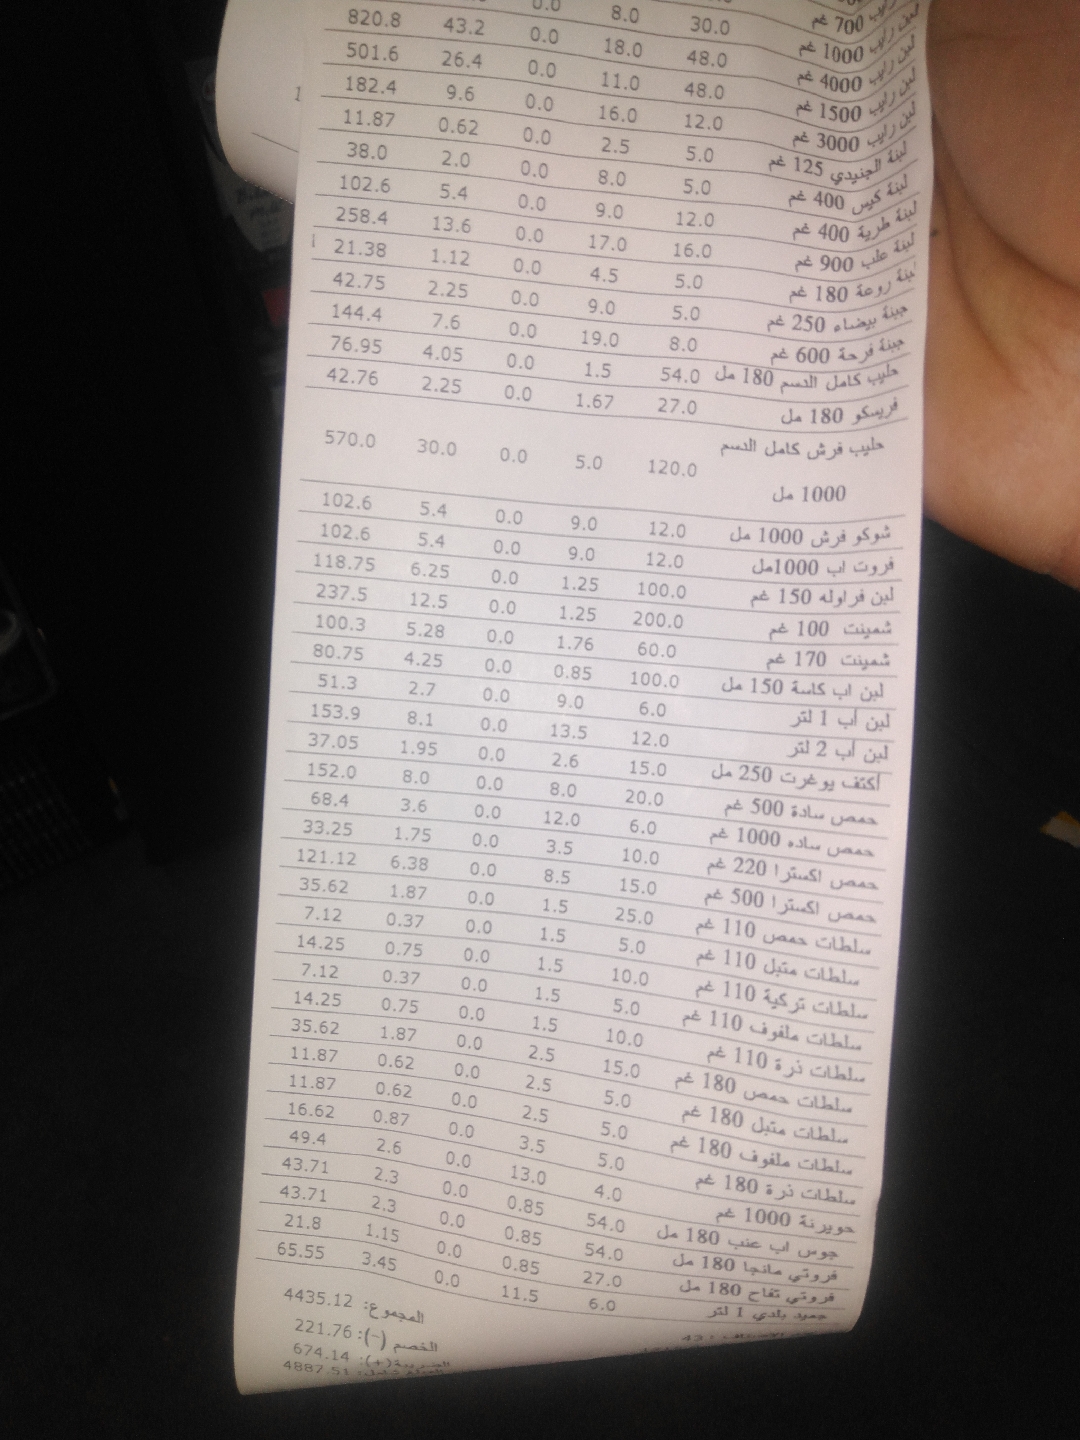 700 غم
لبن رايب 1000 غم 30.0 8.0 0.0
لبن رايب 4000 غم 48.0 18.0 0.0 43.2 820.8
لبن رايب 1500 غم 48.0 11.0 0.0 26.4 501.6
لبن رايب 3000 غم 12.0 16.0 0.0 9.6 182.4
لبنة الجنيدي 125 غم 5.0 2.5 0.0 0.62 11.87
لبنة كيس 400 غم 5.0 8.0 0.0 2.0 38.0
لبنة طرية 400 غم 12.0 9.0 0.0 5.4 102.6
لبنة علب 900 غم 16.0 17.0 0.0 13.6 258.4
لبنة روعة 180 غم 5.0 4.5 0.0 1.12 21.38
جبنة بيضاء 250 غم 5.0 9.0 0.0 2.25 42.75
جبنة فرحة 600 غم 8.0 19.0 0.0 7.6 144.4
حليب كامل الدسم 180 مل 54.0 1.5 0.0 4.05 76.95
فريسكو 180 مل 27.0 1.67 0.0 2.25 42.76
حليب فرش كامل الدسم 120.0 5.0 0.0 30.0 570.0
1000 مل
شوكو فرش 1000 مل 12.0 9.0 0.0 5.4 102.6
فروت اب 1000مل 12.0 9.0 0.0 5.4 102.6
لبن فراوله 150 غم 100.0 1.25 0.0 6.25 118.75
شمينت 100 غم 200.0 1.25 0.0 12.5 237.5
شمينت 170 غم 60.0 1.76 0.0 5.28 100.3
لبن اب كاسة 150 مل 100.0 0.85 0.0 4.25 80.75
لبن أب 1 لتر 6.0 9.0 0.0 2.7 51.3
لبن أب 2 لتر 12.0 13.5 0.0 8.1 153.9
أكتف يوغرت 250 مل 15.0 2.6 0.0 1.95 37.05
حمص سادة 500 غم 20.0 8.0 0.0 8.0 152.0
حمص ساده 1000 غم 6.0 12.0 0.0 3.6 68.4
حمص اكسترا 220 غم 10.0 3.5 0.0 1.75 33.25
حمص اكسترا 500 غم 15.0 8.5 0.0 6.38 121.12
سلطات حمص 110 غم 25.0 1.5 0.0 1.87 35.62
سلطات متبل 110 غم 5.0 1.5 0.0 0.37 7.12
سلطات تركية 110 غم 10.0 1.5 0.0 0.75 14.25
سلطات ملفوف 110 غم 5.0 1.5 0.0 0.37 7.12
سلطات ذرة 110 غم 10.0 1.5 0.0 0.75 14.25
سلطات حمص 180 غم 15.0 2.5 0.0 1.87 35.62
سلطات متبل 180 غم 5.0 2.5 0.0 0.62 11.87
سلطات ملفوف 180 غم 5.0 2.5 0.0 0.62 11.87
سلطات ذرة 180 غم 5.0 3.5 0.0 0.87 16.62
حويرنة 1000 غم 4.0 13.0 0.0 2.6 49.4
جوس اب عنب 180 مل 54.0 0.85 0.0 2.3 43.71
فروتي مانجا 180 مل 54.0 0.85 0.0 2.3 43.71
فروتي تفاح 180 مل 27.0 0.85 0.0 1.15 21.8
جميد بلدي 1 لتر 6.0 11.5 0.0 3.45 65.55
المجموع: 4435.12
الخصم (-): 221.76
الضريبة(+): 674.14
4887.51